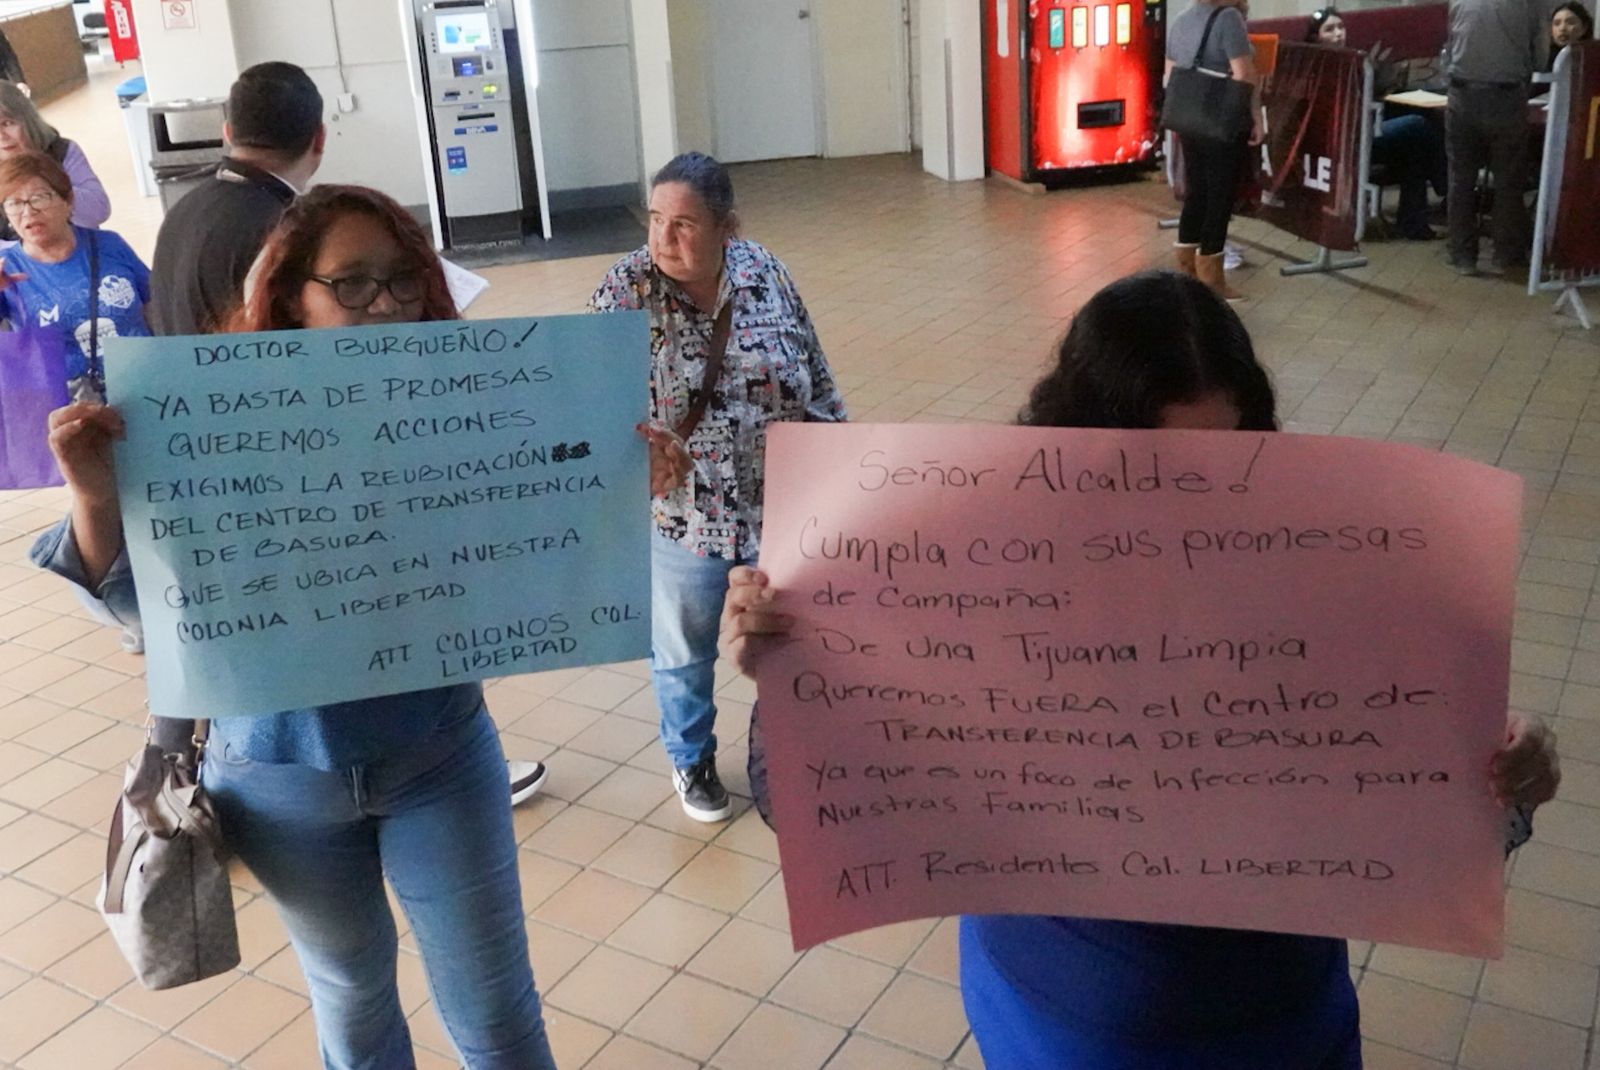 DOCTOR BURGUEÑO!
YA BASTA DE PROMESAS
QUEREMOS ACCIONES
EXIGIMOS LA REUBICACIÓN
DEL CENTRO DE TRANSFERENCIA
DE BASURA.
QUE SE UBICA EN NUESTRA
COLONIA LIBERTAD
ATT COLONOS COL.
LIBERTAD
Señor Alcalde!
Cumpla con sus promesas
de Campaña:
De una Tijuana Limpia
Queremos FUERA el Centro de:
TRANSFERENCIA DE BASURA
Ya que es un foco de Infección para
Nuestras Familias
ATT. Residentes Col. LIBERTAD
BBVA
LE